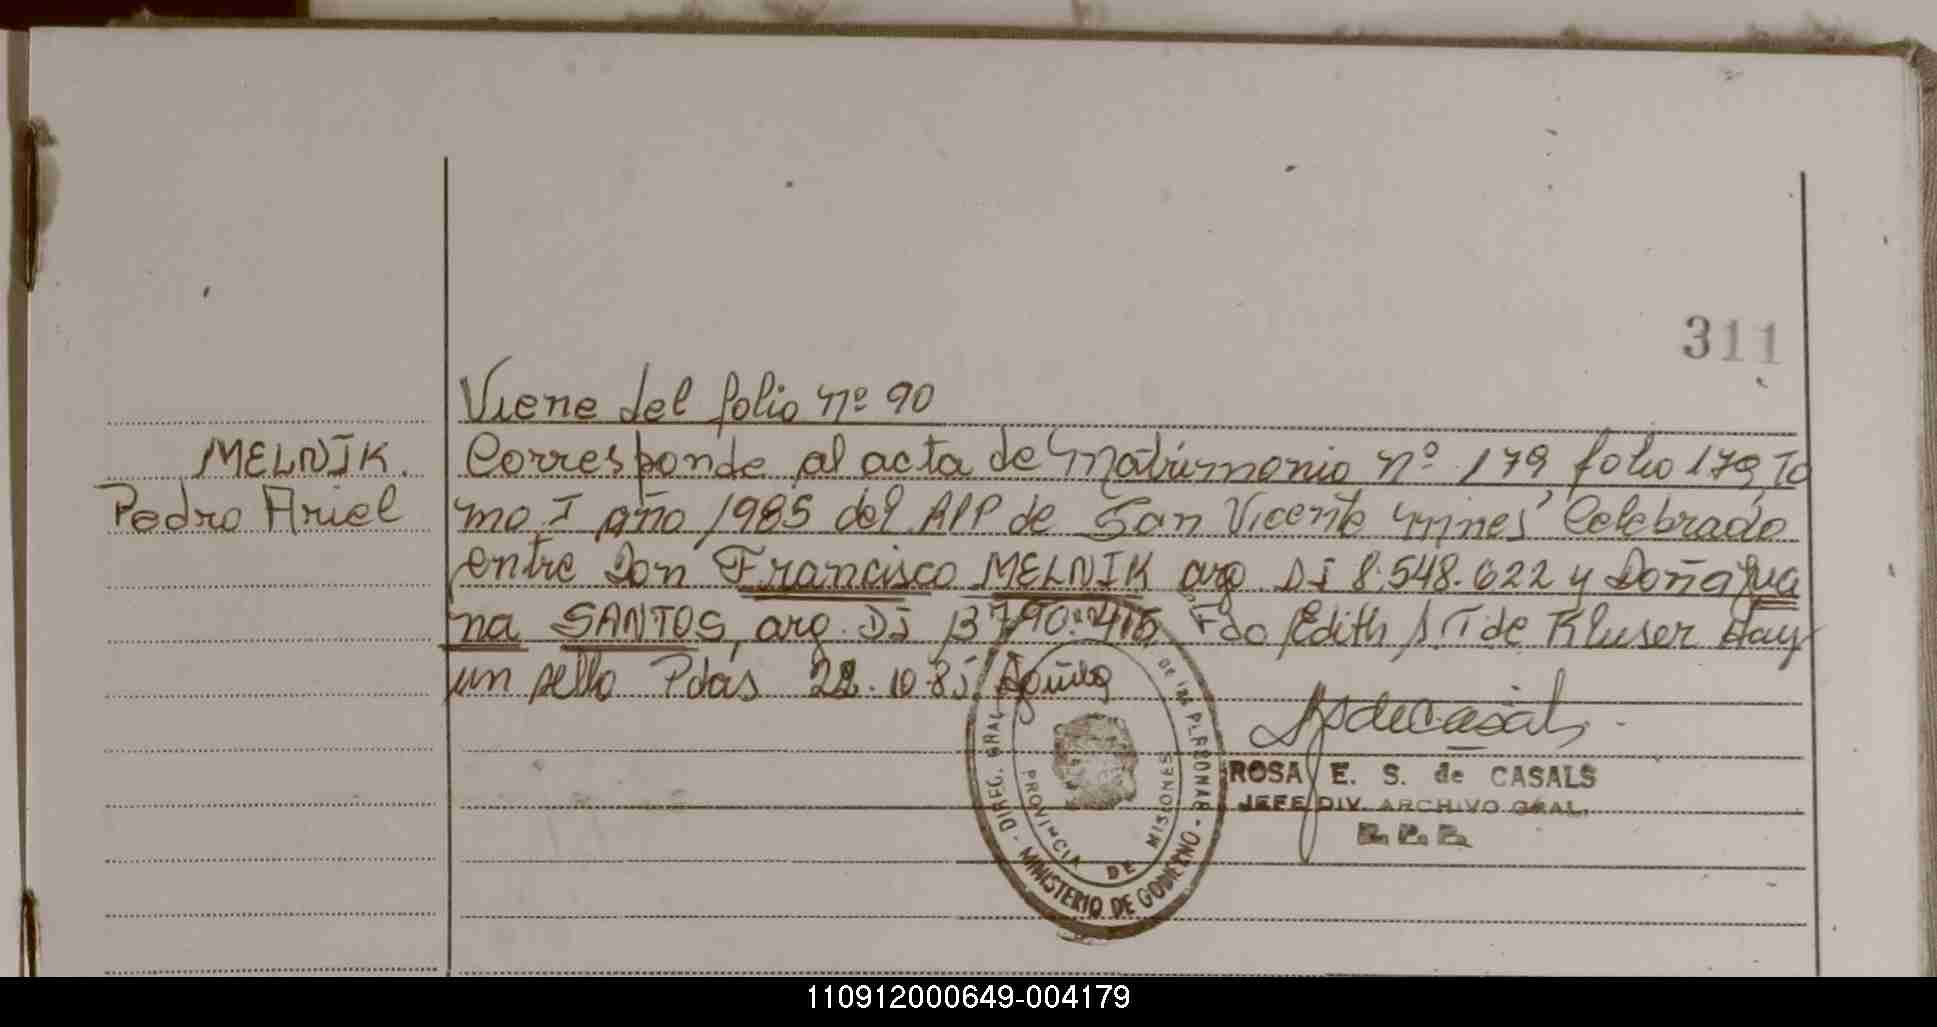 311
Viene del folio nº 90
MELNIK.
Pedro Ariel
Corresponde al acta de Matrimonio nº 179 folio 179 To
mo I año 1985 del APP de San Vicente Mnes' Celebrado
entre Don Francisco MELNIK arg DI 8.548.622 y Doña Jua
na SANTOS, arg. DI 13790.415 Fdo Edith de Kluser Hay
un sello Pdas 22.10.85
ROSA E. S. de CASALS
JEFE DIV. ARCHIVO GRAL.
R. P. P.
DIREC. GRAL. DE LAS PERSONAS - MINISTERIO DE GOBIERNO -
PROVINCIA DE MISIONES
110912000649-004179